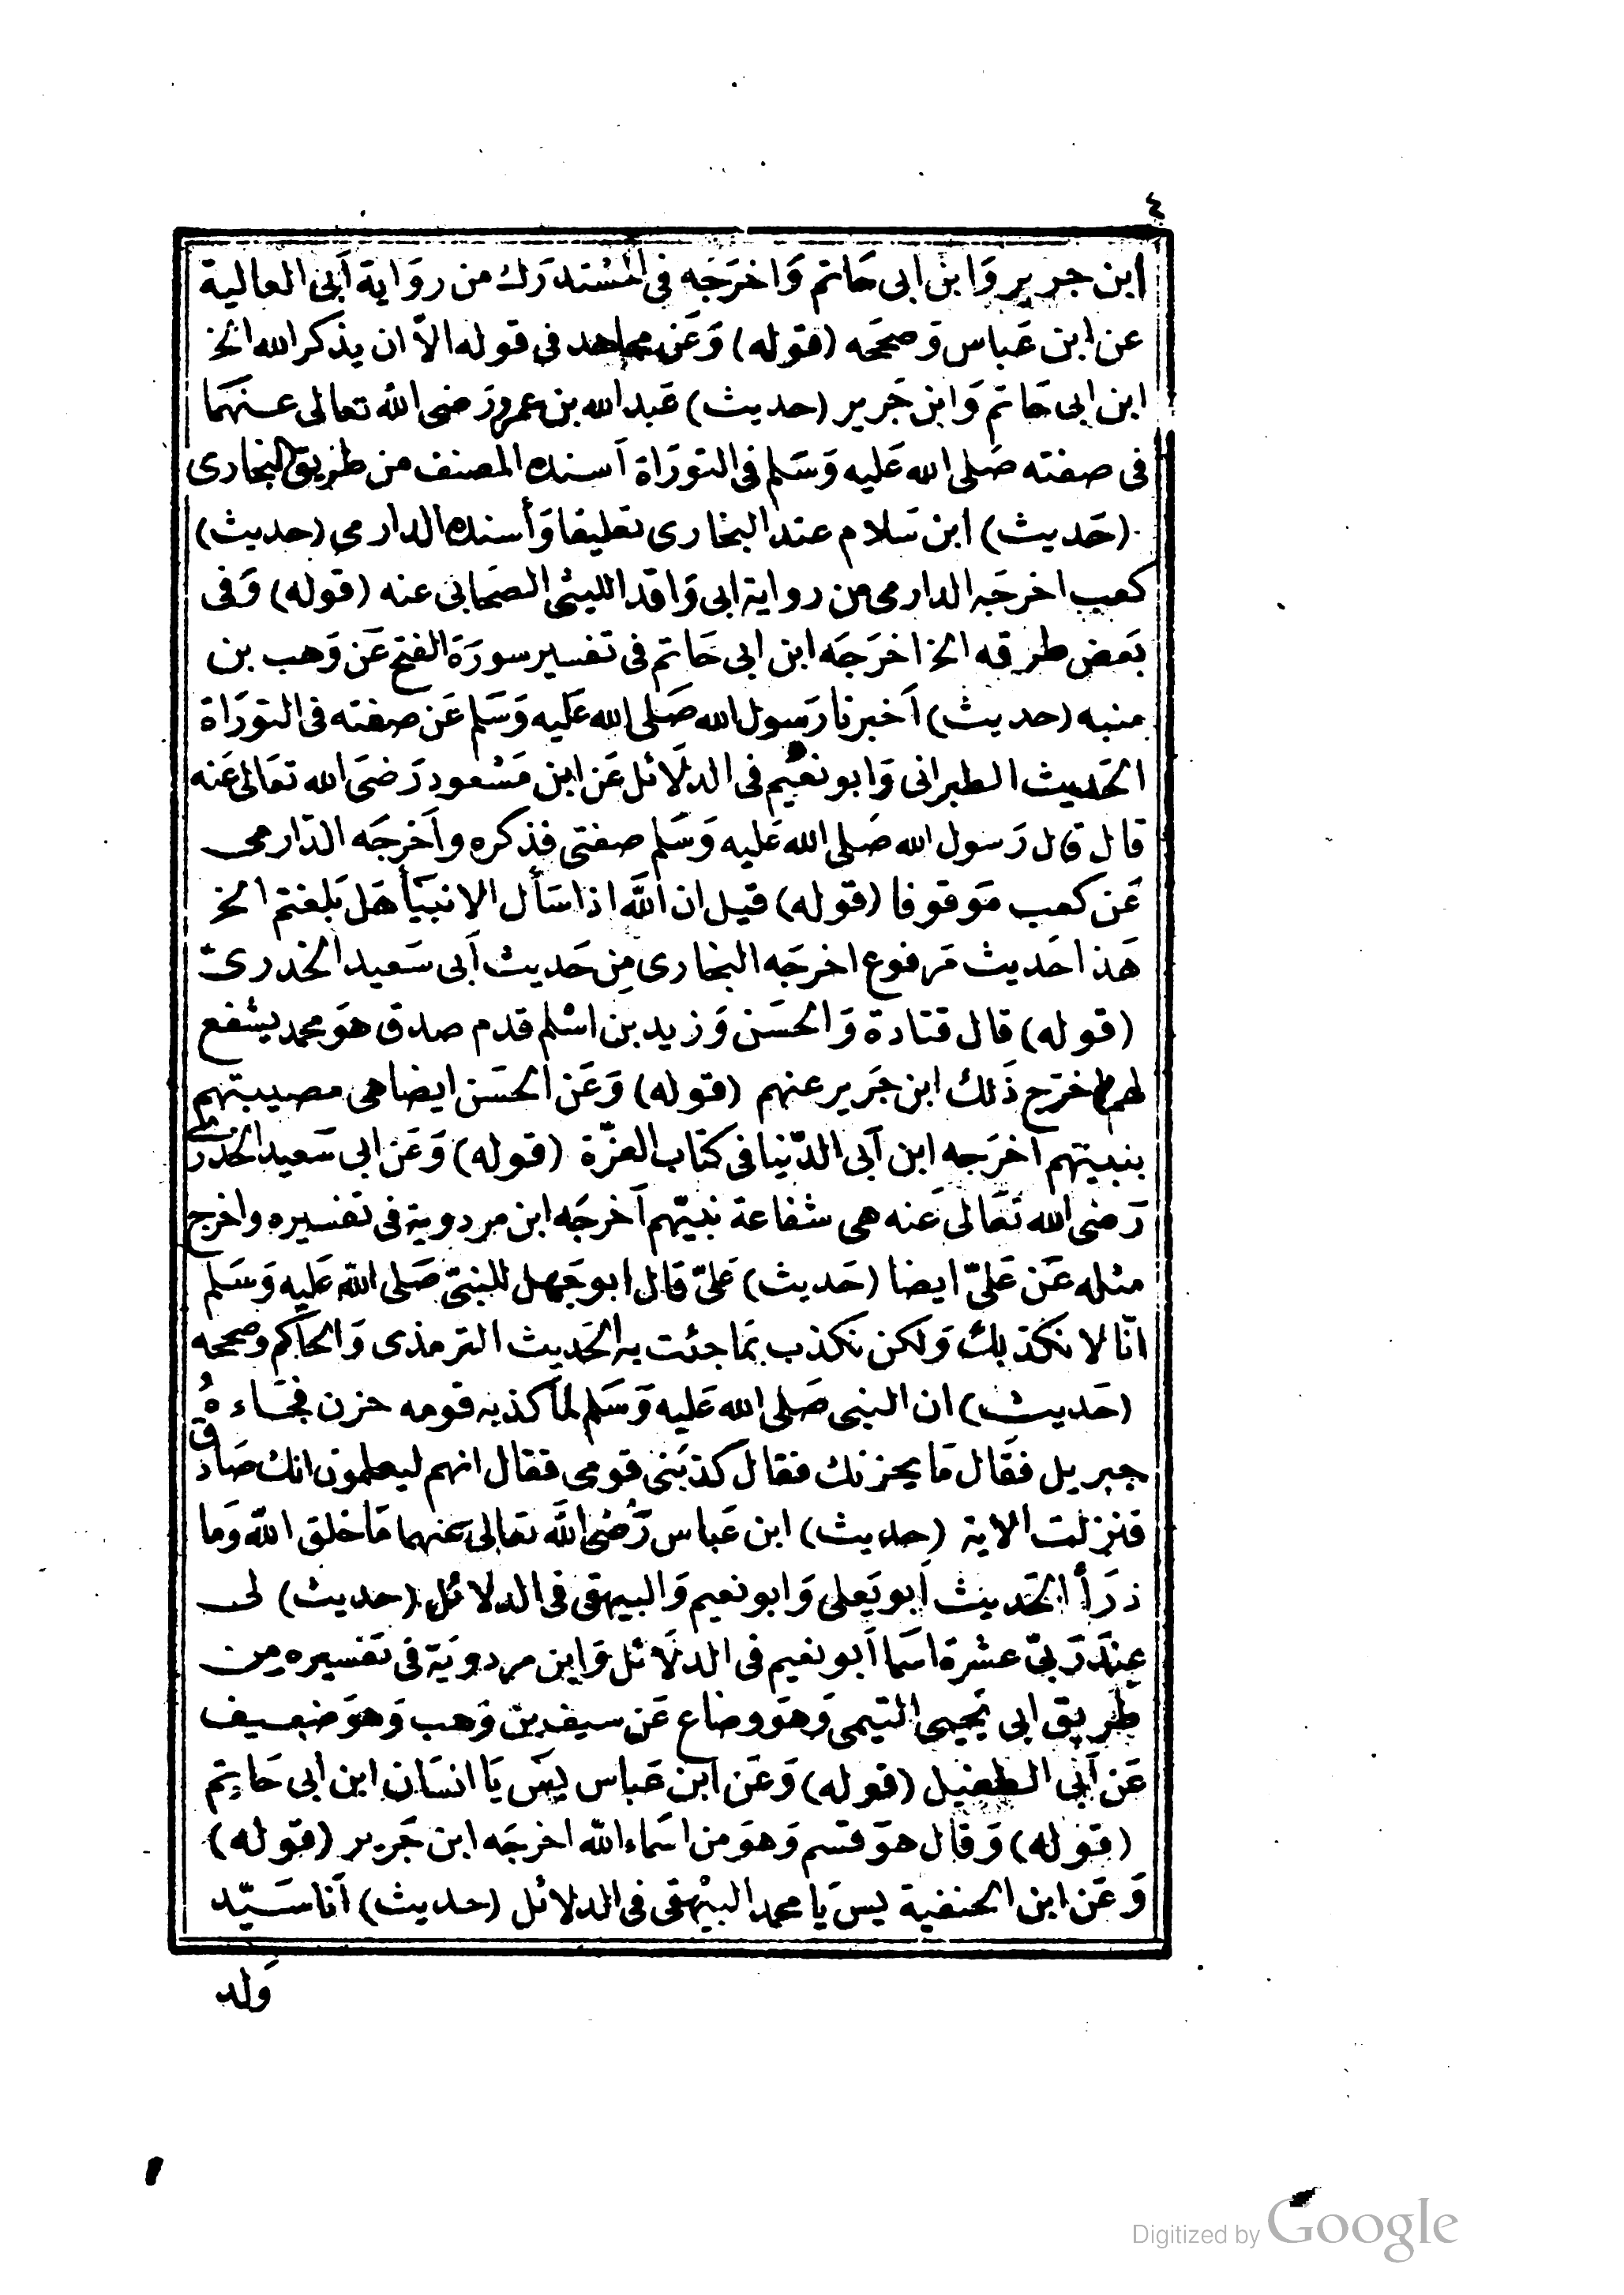 ٤
ابن جرير وَابن ابى حَاتم وَاخرَجَه فى المسْتدرَك من روَاية أبى العالية
عن ابن عَباس وَصححَه (قوله) وَعَن مجاهد فى قوله الاّ ان يذكر الله الخ
ابن ابى حَاتم وَابن جَرير (حديث) عَبد الله بن عمرو رَضى الله تعالى عنهمَا
فى صفته صَلى الله عَليه وَسَلم فى التورَاة أسنده المصنف من طريق البخارى
(حَديث) ابن سَلام عند البخارى تعليقا وَأسنده الدارمى (حديث)
كعب اخرجَه الدارمى من رواية ابى وَاقد الليثى الصحَابى عنه (قوله) وَفى
بَعض طرقه الخ اخرَجَه ابن ابى حَاتم فى تفسير سورَة الفتح عَن وَهب بن
منبه (حديث) أخبرنا رَسول الله صَلى الله عَليه وَسَلم عَن صفته فى التورَاة
الحَديث الطبرانى وَابو نعيم فى الدلَائل عَن ابن مَسْعود رَضىَ الله تعَالى عَنه
قال قال رَسول الله صَلى الله عَليه وَسَلم صفتى فذكره وأخرجَه الدّارمى
عَن كعب مَوقوفا (قوله) قيل ان اللَّه اذا سَأل الانبيَأ هَل بَلغتم الخ
هَذا حَديث مَرفوع اخرجَه البخارى مِن حَديث أبى سَعيد الخدرىّ
(قوله) قال قتادة وَالحسَن وَزيد بن اسْلم قدم صدق هوَ محمد يشفع
لهم اخرَج ذَلك ابن جَرير عنهم (قوله) وَعَن الحسَن ايضا هى مصيبتهم
بنبيتهم اخرَجه ابن أبى الدّنيا فى كتاب العزّة (قوله) وَعَن ابى سَعيد الخدرى
رَضى الله تعَالى عَنه هى شفاعة نبيّهم أخرجَه ابن مردوية فى تفسيره واخرج
مثله عَن عَلىّ ايضا (حَديث) عَلىّ قَال ابو جَهل للنبىّ صَلى اللّه عَليه وَسَلم
انّا لا نكذبك وَلكن نكذب بمَا جئت به الحَديث الترمذى وَالحَاكم وصححه
(حَديث) ان النبى صَلى الله عَليه وَسَلم لمّا كذبه قومه حزن فجَاءهُ
جبريل فقَال مَا يحزنك فقال كذبَنى قومى فقال انهم ليعلمون انك صَادق
فنزلت الاية (حديث) ابن عَباس رَضى اللَّه تعالى عَنهما مَا خلق اللّه وَما
ذرَأ الحَديث أبو يَعلى وَابو نعيم وَالبيهقى فى الدلائل (حديث) لى
عِندَ رَبىّ عشرة اسَما أبو نعيم فى الدلَائل وَابن مردويَة فى تَفسيره مِن
طريق ابى يَحيى التيمى وَهوَ وضاع عَن سيف بن وَهب وَهوَ ضعيف
عَن أبى الطفيل (قوله) وَعَن ابن عَباس يسَ يَا انسَان ابن ابى حَاتِم
(قوله) وَقال هوَ قسَم وَهوَ من اسَماء اللّه اخرجَه ابن جَرير (قوله)
وَعَن ابن الحنفية يسَ يَا محمد البيْهقى فى الدلائل (حديث) أنا سَيّد
وَلد
Digitized by Google